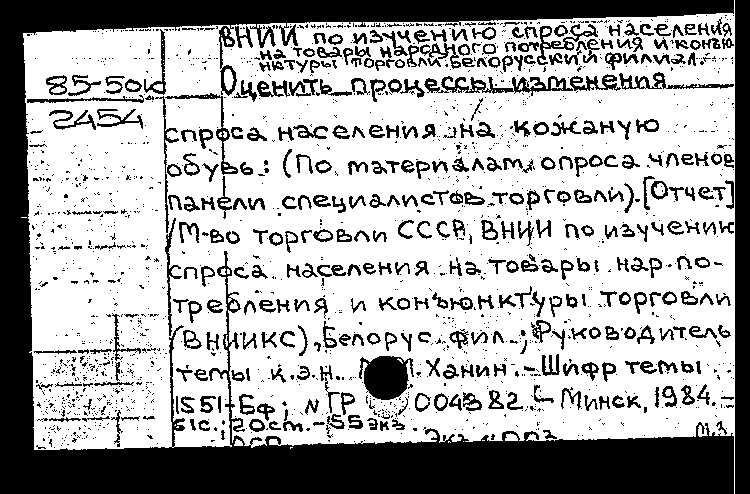 ВНИИ по изучению спроса населения
на товары народного потребления и конъю
нктуры торговли. Белорусский филиал.
85-50к
Оценить процессы изменения
2454
спроса населения на кожаную
обувь: (По материалам опроса членов
панели специалистов торговли). [Отчет]
/М-во торговли СССР, ВНИИ по изучению
спроса населения на товары нар. по-
требления и конъюнктуры торговли
(ВНИИКС), Белорус. фил.; Руководитель
темы к.э.н. Ханин. - Шифр темы
1551-Бф; № ГР 004382. - Минск, 1984. -
61с.; 20ст. - 55 экз.